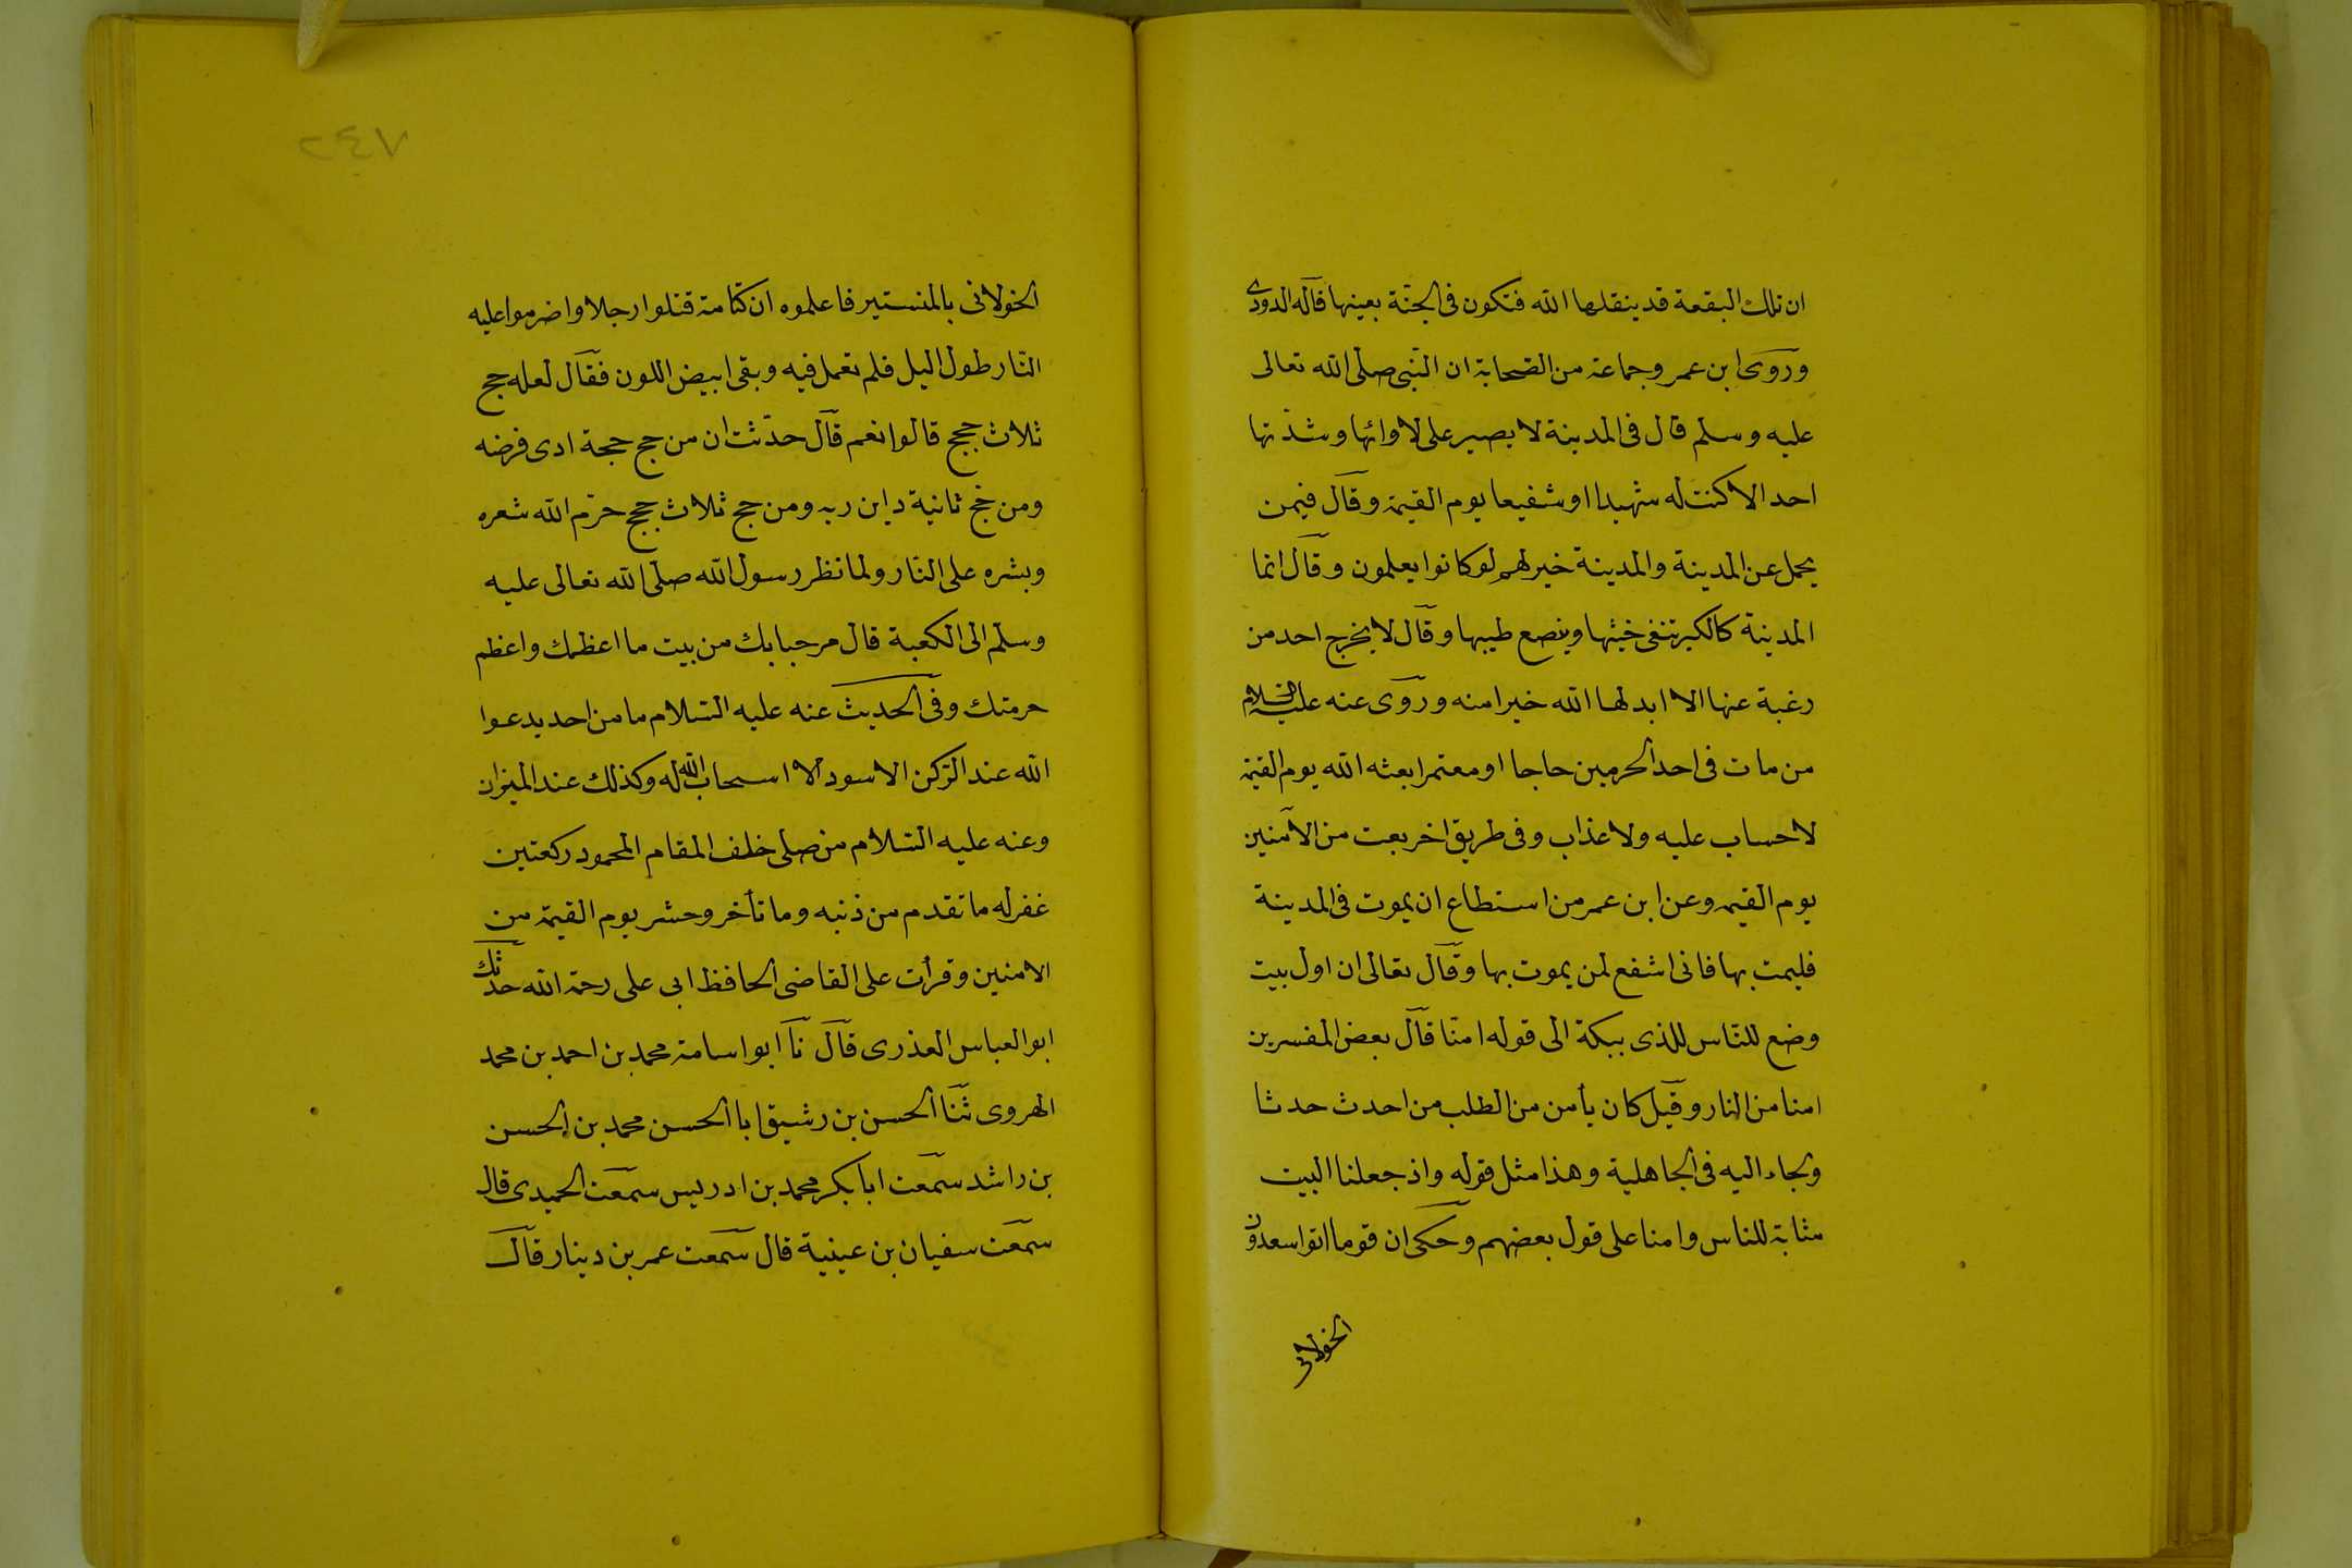 ان تلك البقعة قد ينقلها الله فتكون فى الجنّة بعينها قاله الدودى
وروى ابن عمر وجماعة من الصّحابة ان النّبى صلّى الله تعالى
عليه وسلم قال فى المدينة لا يصبر على لاوائها وشدّتها
احد الا كنت له شهيدا او شفيعا يوم القيمة وقال فيمن
يحمل عن المدينة والمدينة خير لهم لو كانوا يعلمون وقال انما
المدينة كالكير تنفى خبثها وينصع طيبها وقال لا يخرج احد من
رغبة عنها الا ابدلها الله خيرا منه وروى عنه عليه السّلام
من مات فى احد الحرمين حاجا او معتمرا بعثه الله يوم القيمة
لا حساب عليه ولا عذاب وفى طريق اخر بعث من الآمنين
يوم القيمه وعن ابن عمر من استطاع ان يموت فى المدينة
فليمت بها فانى اشفع لمن يموت بها وقال تعالى ان اول بيت
وضع للنّاس للذى ببكة الى قوله امنّا قال بعض المفسرين
امنا من النار وقيل كان يأمن من الطلب من احدث حدثا
ولجاء اليه فى الجاهلية وهذا مثل قوله واذ جعلنا البيت
مثابة للناس وامنا على قول بعضهم وحكى ان قوما اتوا سعدون
الخولانى
٧٤٢
الخولانى بالمنستير فاعلموه ان كتامة قتلوا رجلا واضرموا عليه
النّار طول اليل فلم تعمل فيه وبقى ابيض اللون فقال لعله حج
ثلاث حجج قالوا نعم قال حدّثت ان من حج حجة ادى فرضه
ومن حج ثانية داين ربه ومن حج ثلاث حجج حرّم الله شعره
وبشره على النّار ولما نظر رسول الله صلّى الله تعالى عليه
وسلّم الى الكعبة قال مرحبا بك من بيت ما اعظمك واعظم
حرمتك وفى الحديث عنه عليه السّلام ما من احد يدعوا
الله عند الرّكن الاسود الا اسحاب الله له وكذلك عند الميزان
وعنه عليه السّلام من صلى خلف المقام المحمود ركعتين
غفر له ما تقدم من ذنبه وما تأخر وحشر يوم القيمة من
الامنين وقرأت على القاضى الحافظ ابى على رحمة الله حدثك
ابو العباس العذرى قال نا ابو اسامة محمد بن احمد بن محمد
الهروى ثنا الحسن بن رشيق ابا الحسن محمد بن الحسن
بن راشد سمعت ابا بكر محمد بن ادريس سمعت الحميدى قال
سمعت سفيان بن عيينة قال سمعت عمر بن دينار قال